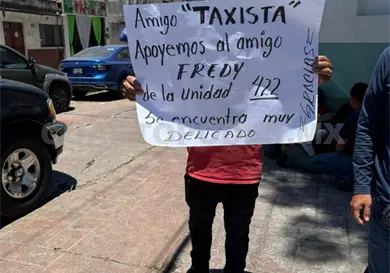 Amigo "TAXISTA"
Apoyemos al amigo
FREDY
de la unidad 422
se encuentra muy
DELICADO
=GRACIAS=